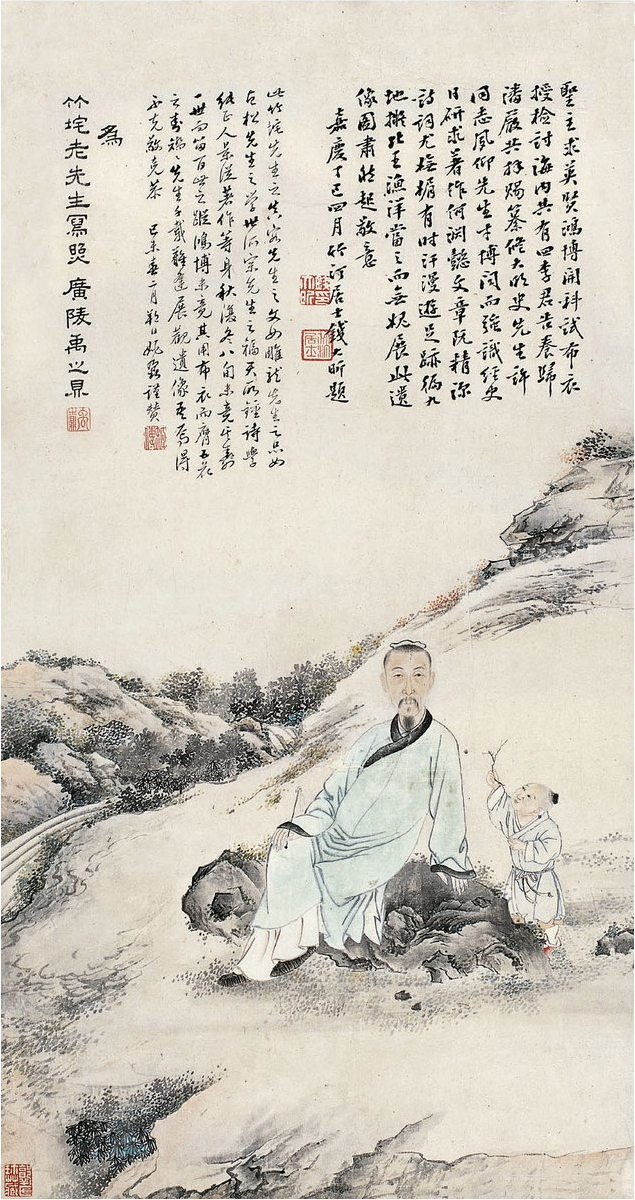 聖主求英賢鴻博開科試布衣
授檢討海內共有四李君告養歸
潘嚴共拜賜纂脩大明史先生許
同志夙仰先生才博聞而強識經史
日研求著作何淵懿文章既精深
詩詞尤有時汗漫遊足跡徧九
地擬比王漁洋當之而無愧展此遺
像圖肅然起敬意
嘉慶丁巳四月竹汀居士錢大昕題
此竹垞先生之真容先生之文如雕龍先生之品如
古松先生之學世所宗先生之福天所鍾詩學
人景從著作等身秋復冬八旬未竟
一世而留百世之蹤鴻博未竟其用布衣而膺五花
之先生千載難逢展觀遺像吾焉得
不克敬克恭 己未春二月姚鼐謹贊
為
竹垞老先生寫照 廣陵禹之鼎